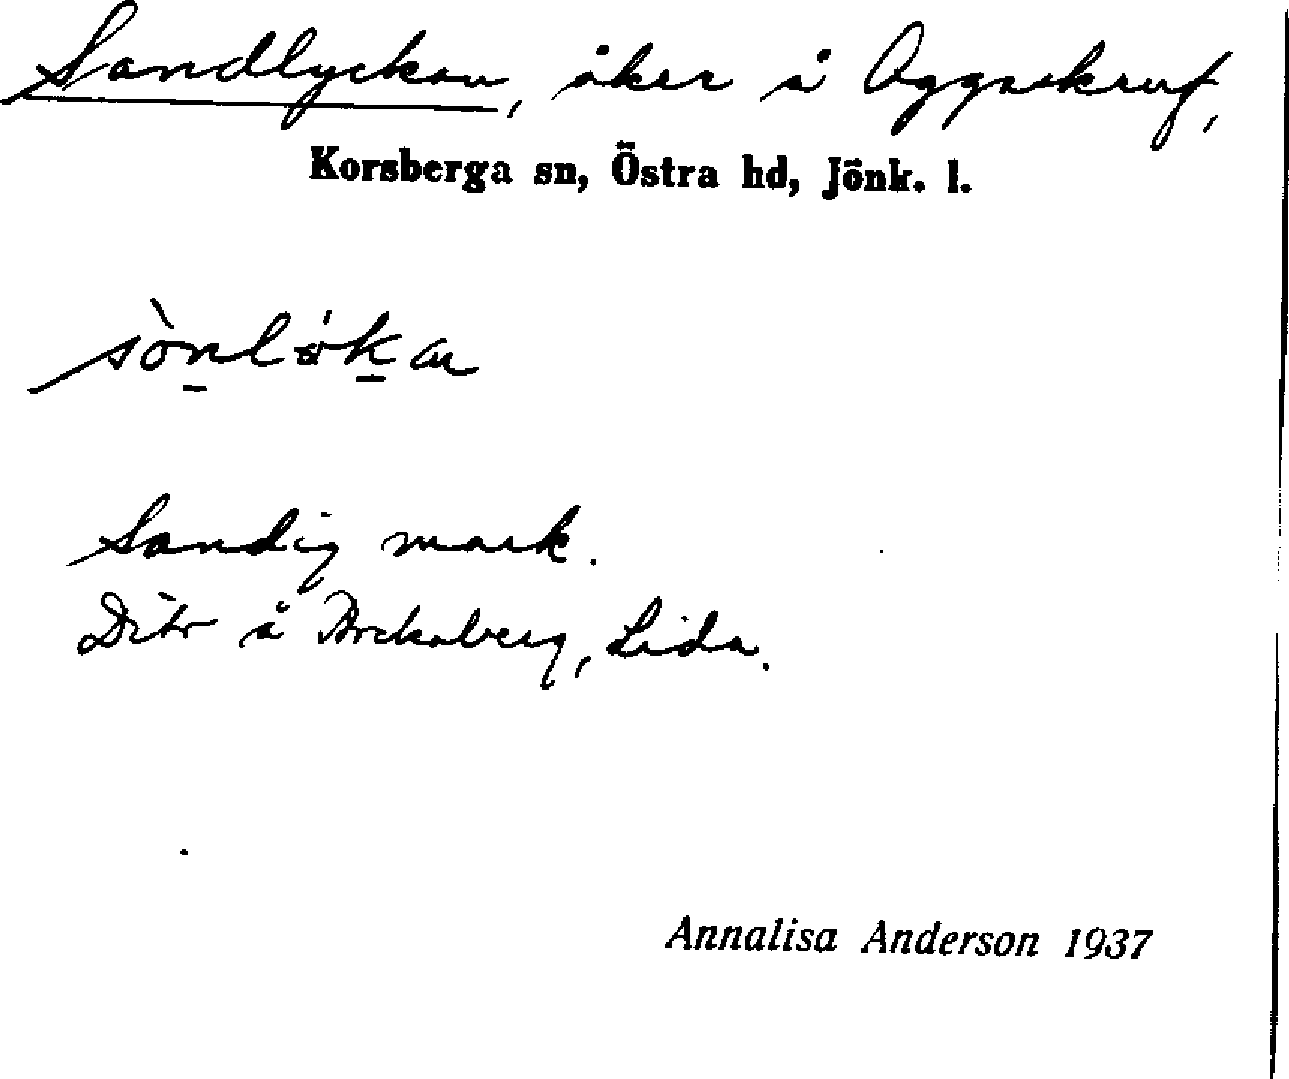 Sandlyckan, åker å Aggaskruf,
Korsberga sn, Östra hd, Jönk. l.
Sandig mark.
Dito å Brckaberg, Lida.
Annalisa Anderson 1937